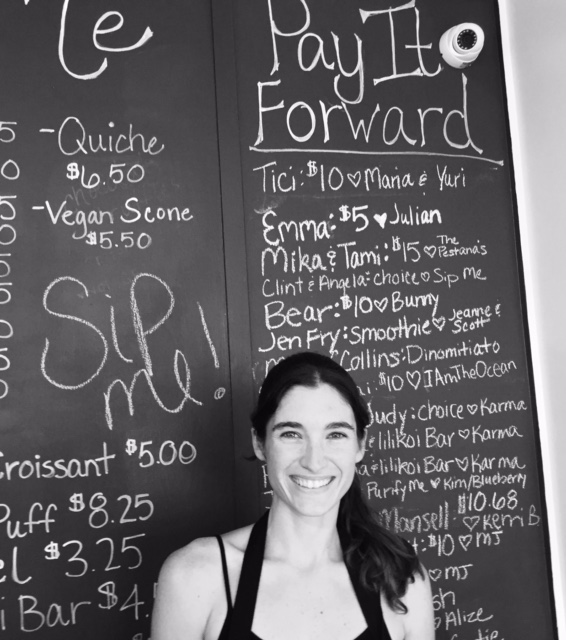 -Quiche
$6.50
-Vegan Scone
$5.50
Sip
me!
Croissant $5.00
Puff $8.25
$3.25
Bar $4.
Pay It
Forward
Tici: $10 ♡ Maria & Yuri
Emma: $5 ♥ Julian
Mika & Tami: $15 ♡ The Pestana's
Clint & Angela: choice ♡ Sip me
Bear: $10 ♡ Bunny
Jen Fry: Smoothie ♡ Jeanne & Scott
Collins: Dinomitiato
$10 ♡ IAmTheOcean
Judy: choice ♡ Karma
& lilikoi Bar ♡ Karma
& lilikoi Bar ♡ Karma
Purify Me ♥ Kim/Blueberry
$10.68
Mansell ♡ Kerri B
$10 ♡ MJ
♡ MJ
♡ Alize